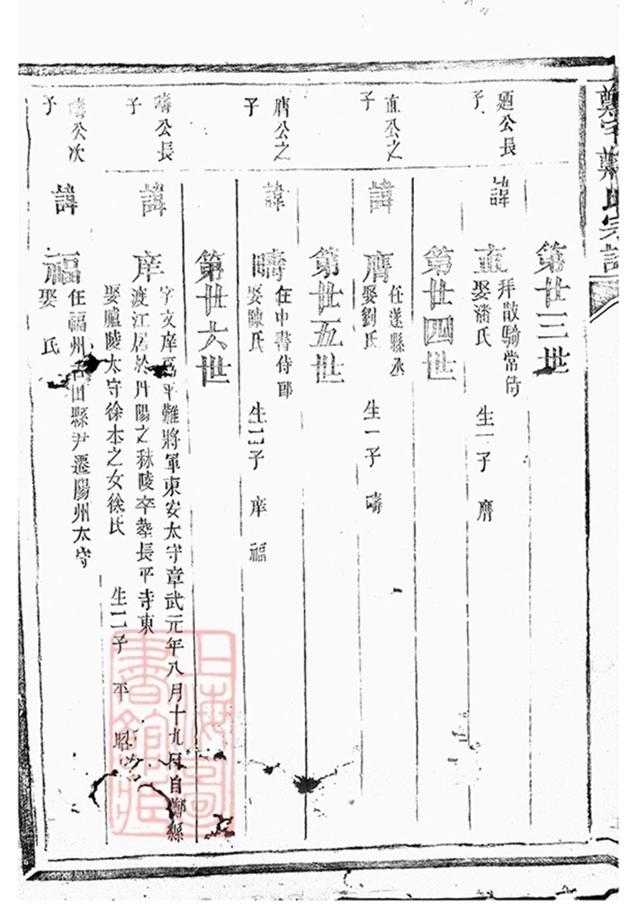 鄭氏宗譜
第廿三世
廼公長子
諱直
拜散騎常侍
娶潘氏
生一子膺
第廿四世
直公之子
諱膺
任蓬縣丞
娶劉氏
生一子疇
第廿五世
膺公之子
諱疇
任中書侍郎
娶陳氏
生二子庠福
第廿六世
疇公長子
諱庠
字文庠爲平難將軍東安太守章武元年八月十九日自鄭縣
渡江居於丹陽之秣陵卒塟長平寺東
娶廬陵太守徐本之女徐氏
生二子平昭
疇公次子
諱福
任福州古田縣尹遷陽州太守
娶氏
上海圖書館藏